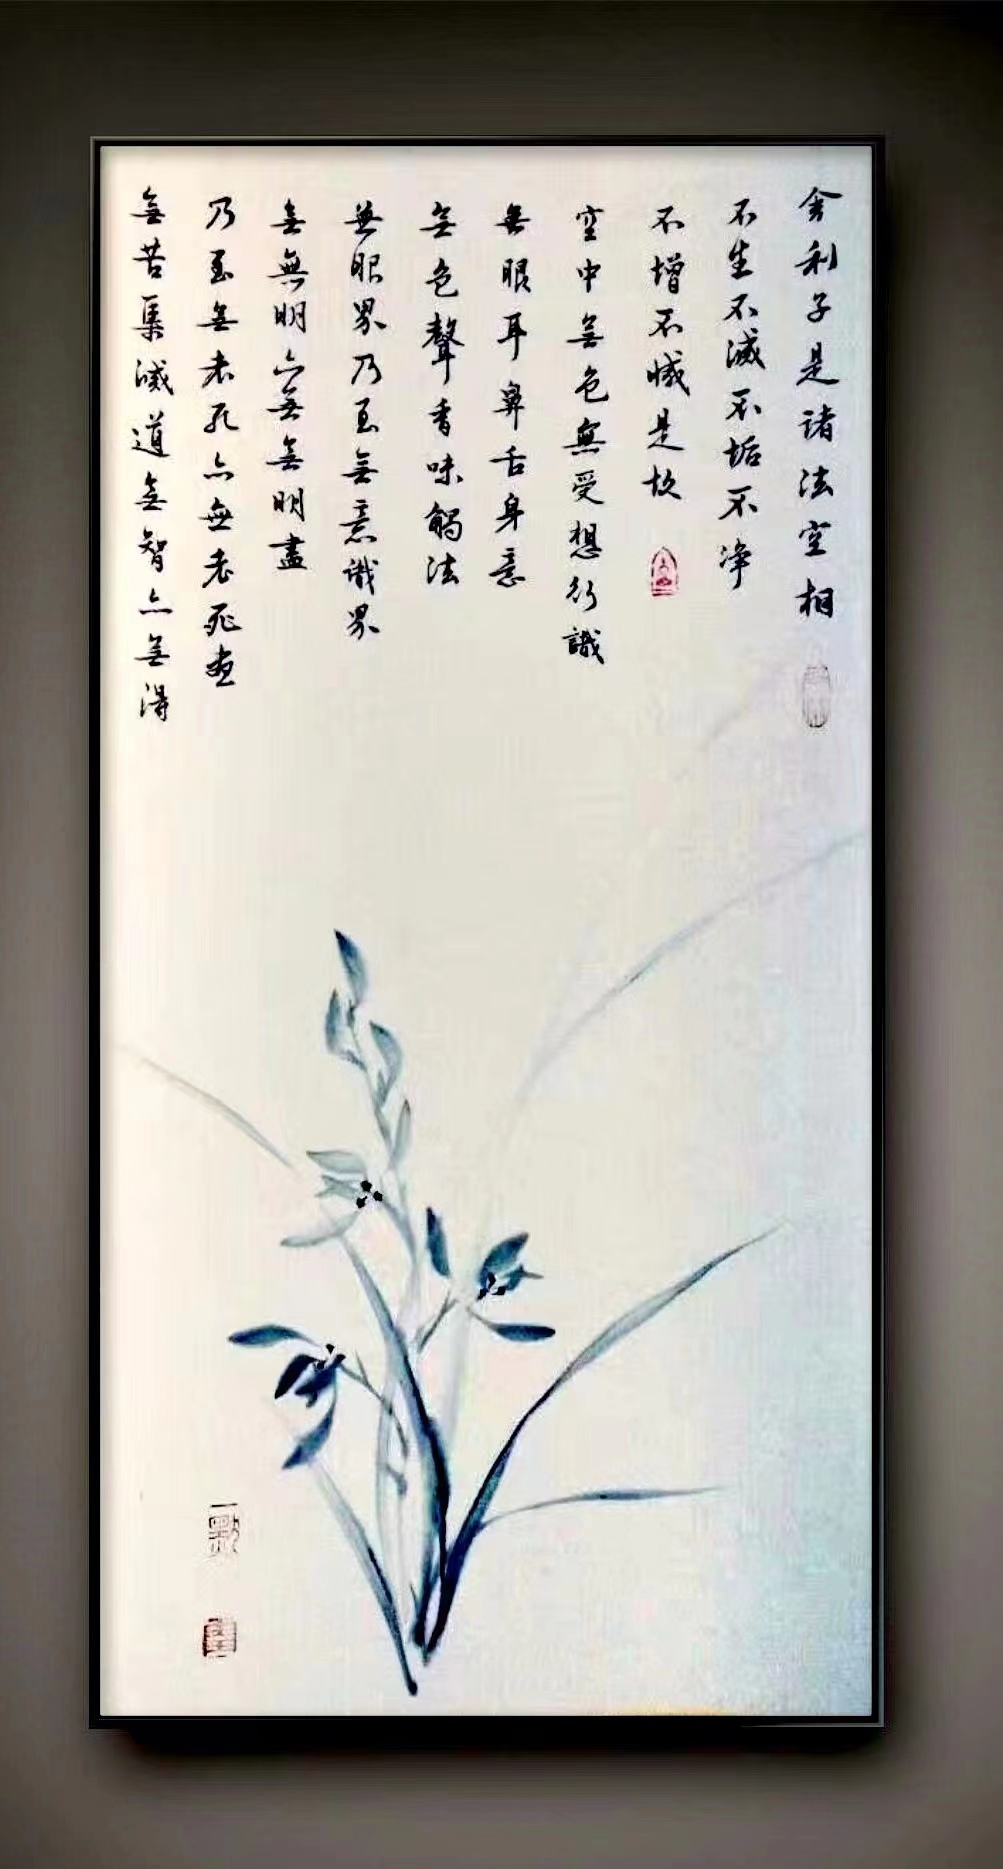 舍利子是诸法空相
不生不滅不垢不净
不增不滅是故
空中無色無受想行識
無眼耳鼻舌身意
無色聲香味觸法
無眼界乃至無意識界
無無明亦無無明盡
乃至無老死亦無老死盡
無苦集滅道無智亦無得
一默